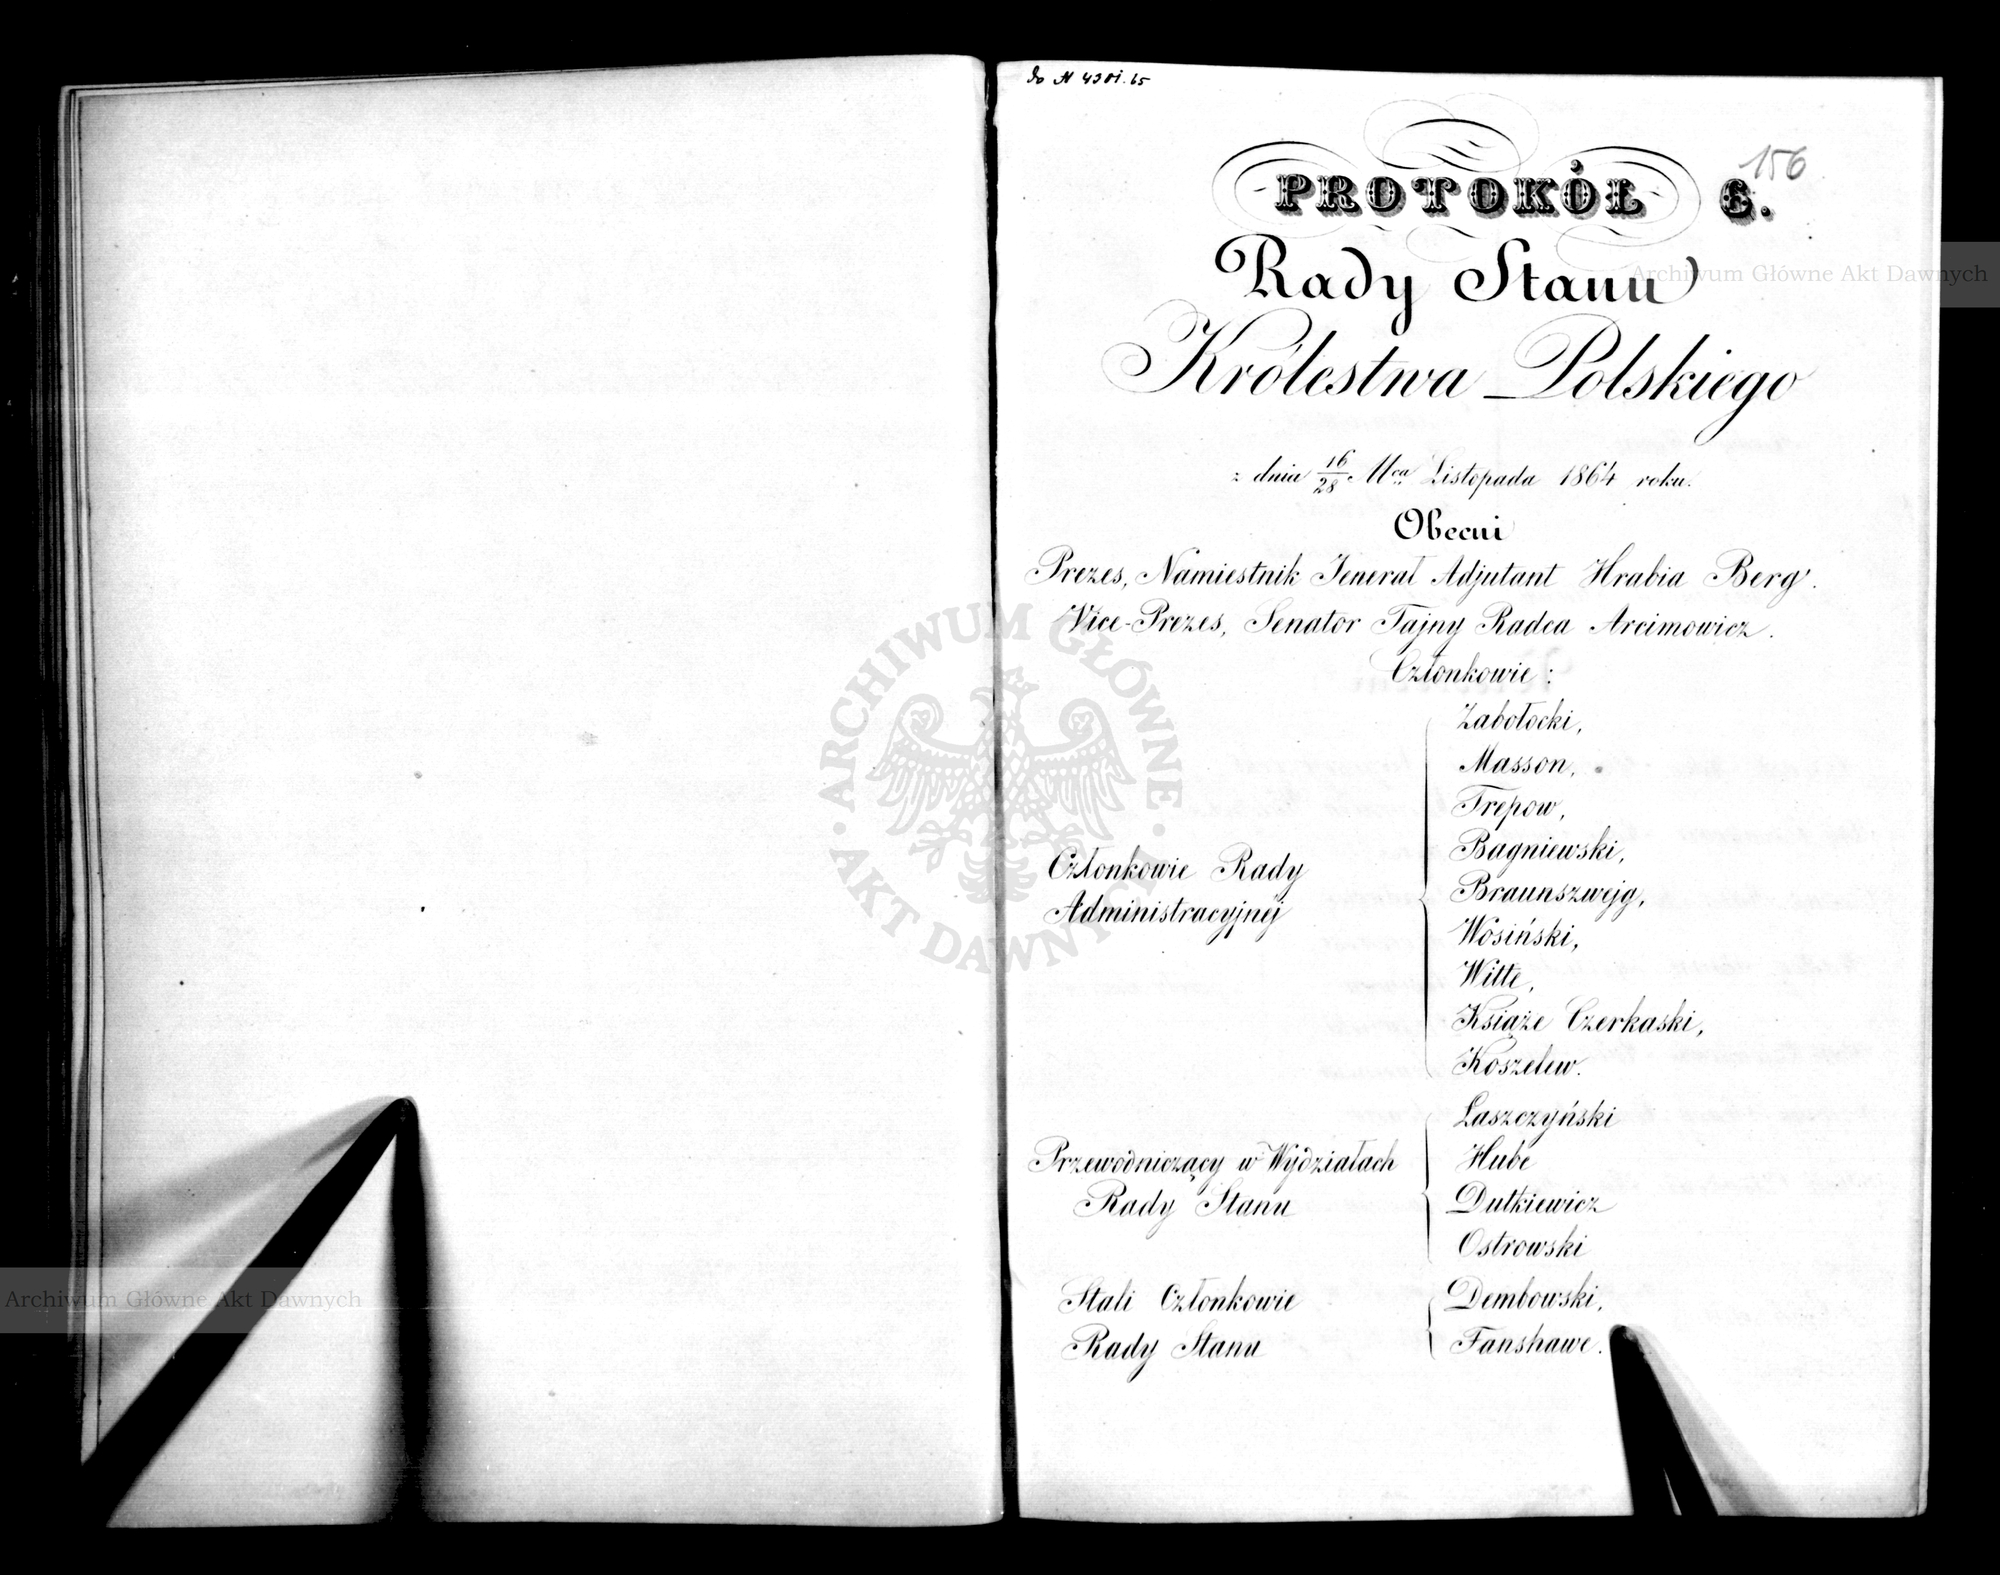 do N 4301.65
156
PROTOKÓŁ 6.
Rady Stanu
Królestwa Polskiego
z dnia 16/28 Mca Listopada 1864 roku.
Obecni
Prezes, Namiestnik Jenerał Adjutant Hrabia Berg.
Vice-Prezes, Senator Tajny Radca Arcimowicz.
Członkowie:
Członkowie Rady
Administracyjnéj
Zabołocki,
Masson,
Trepow,
Bagniewski,
Braunszwejg,
Wosiński,
Witte,
Książe Czerkaski,
Koszelew.
Przewodniczący w Wydziałach
Rady Stanu
Łaszczyński
Hube
Dutkiewicz
Ostrowski
Stali Członkowie
Rady Stanu
Dembowski,
Fanshawe.
Archiwum Główne Akt Dawnych
ARCHIWUM GŁÓWNE AKT DAWNYCH
Archiwum Główne Akt Dawnych